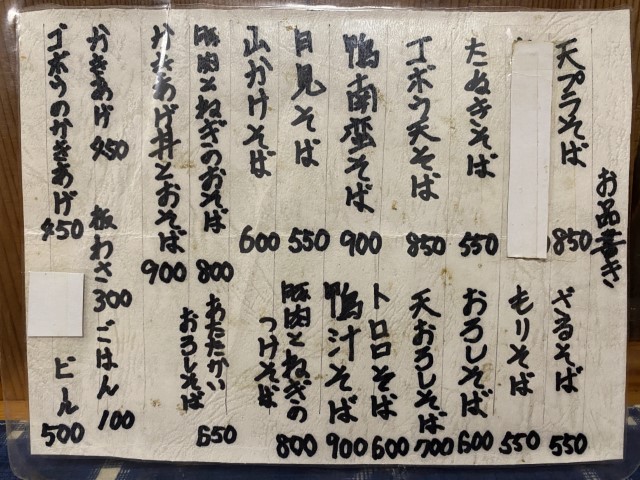 お品書き
天プラそば 850
たぬきそば 550
ゴボウ天そば 850
鴨南蛮そば 900
月見そば 550
山かけそば 600
豚肉とねぎのおそば 800
かきあげ丼とおそば 900
かきあげ 450
ゴボウのかきあげ 450
ざるそば 550
もりそば 550
おろしそば 600
天おろしそば 700
トロロそば 600
鴨汁そば 900
豚肉とねぎの
つけそば 800
あたたかい
おろしそば 650
板わさ 300
ごはん 100
ビール 500